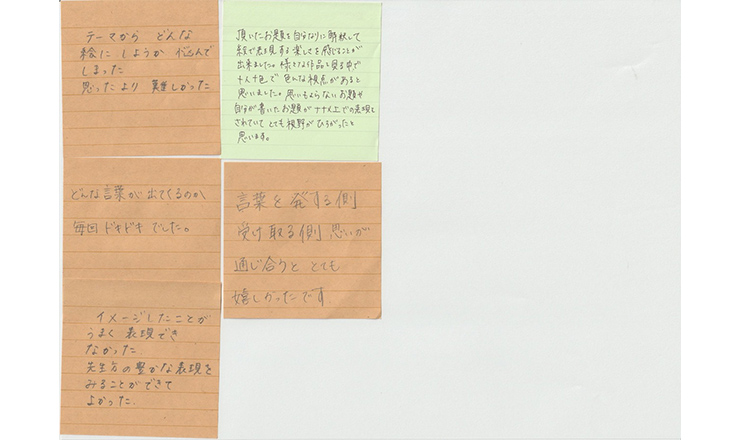 テーマから どんな
絵に しようか 悩んで
しまった
思ったより 難しかった
頂いたお題を自分なりに解釈して
絵で表現する楽しさを感じることが
出来ました。様々な作品を見る中で
十人十色で色んな視点があると
思いました。思いもよらないお題や
自分が書いたお題がナナメ上での表現を
されていてとても視野がひろがったと
思います。
どんな言葉が出てくるのか
毎回ドキドキでした。
言葉を発する側
受け取る側 思いが
通じ合うと とても
嬉しかったです
イメージしたことが
うまく表現でき
なかった
先生方の豊かな表現を
みることができて
よかった.